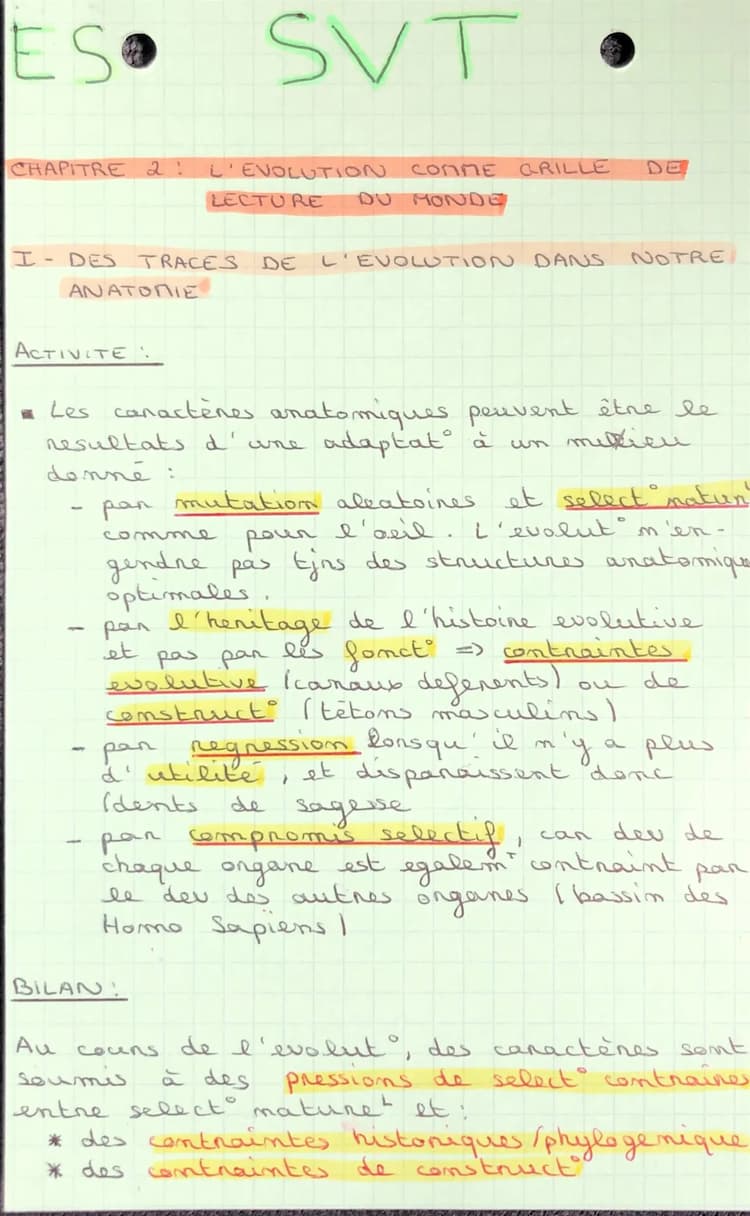 ES SVT
CHAPITRE 2 : L'EVOLUTION COMME GRILLE DE
LECTURE DU MONDE
I - DES TRACES DE L'EVOLUTION DANS NOTRE
ANATOMIE
ACTIVITE :
▪ Les caractères anatomiques peuvent être le
resultats d'une adaptat° à un milieu
donné :
- par mutation aleatoires et select° natur
comme pour l'œil. L'evolut° n'en-
gendre pas tjrs des structures anatomique
optimales.
- par l'heritage de l'histoire evolutive
et pas par les fonct° => contraintes
evolutive (canaux deferents) ou de
construct° (tétons masculins)
- par regression lorsqu'il n'y a plus
d'utilité, et disparaissent donc
(dents de sagesse
- par compromis selectif, car dev de
chaque organe est egalemᵀ contraint par
le dev des autres organes (bassin des
Homo Sapiens)
BILAN :
Au cours de l'evolut°, des caractères sont
soumis à des pressions de select° contraires
entre select° natureᴸ et :
* des contraintes historiques/phylogenique
* des contraintes de construct°